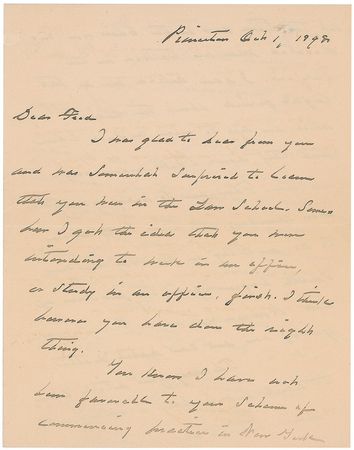 Princeton Oct 1, 1898
Dear Fred
I was glad to hear from you
and was somewhat surprised to learn
that you were in the Law School. Some-
how I got the idea that you were
intending to work in an office,
or study in an office, first. I think
however you have done the right
thing.
You know I have not
been favorable to your scheme of
commencing practice in New York